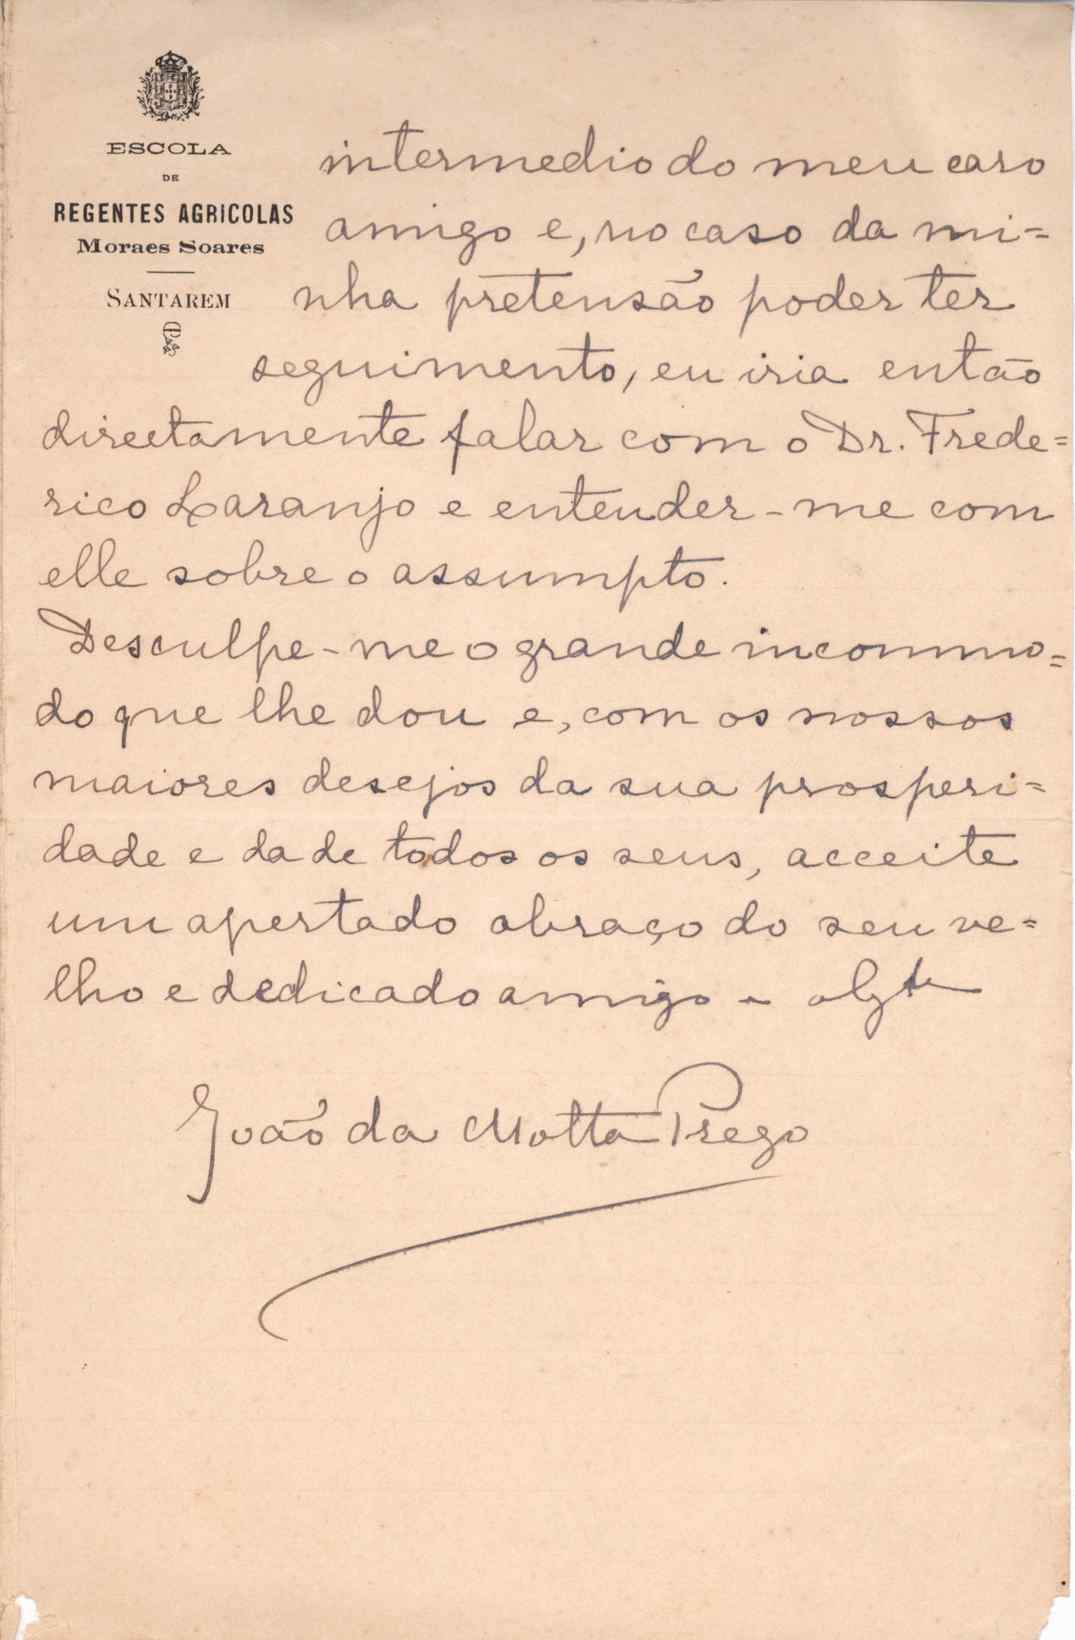 ESCOLA
DE
REGENTES AGRICOLAS
Moraes Soares
SANTAREM
intermedio do meu caro
amigo e, no caso da mi=
nha pretensão poder ter
seguimento, eu iria então
directamente falar com o Dr. Frede=
rico Laranjo e entender-me com
elle sobre o assumpto.
Desculpe-me o grande incommo=
do que lhe dou e, com os nossos
maiores desejos da sua prosperi=
dade e da de todos os seus, acceite
um apertado abraço do seu ve=
lho e dedicado amigo -
João da Motta Prego